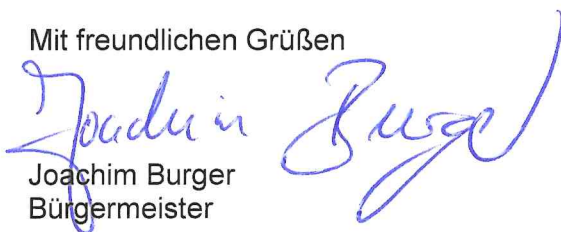 Mit freundlichen Grüßen
Joachim Burger
Joachim Burger
Bürgermeister